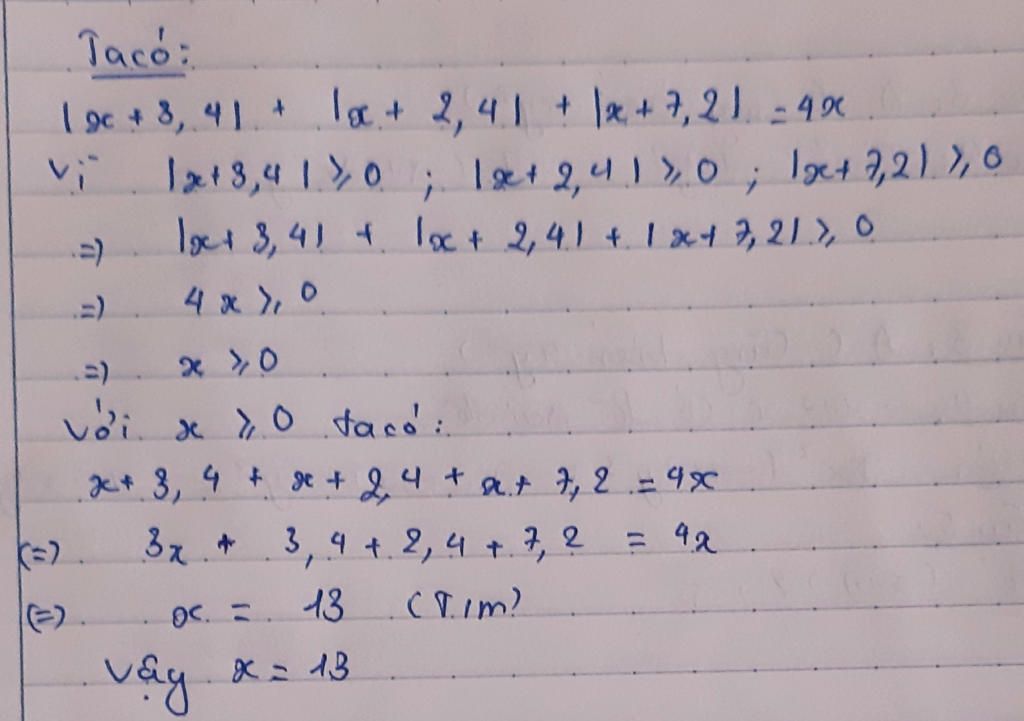 Ta có:
|x + 3,4| + |x + 2,4| + |x + 7,2| = 4x
Vì |x+3,4| ≥ 0 ; |x+2,4| ≥ 0 ; |x+7,2| ≥ 0
=> |x+3,4| + |x+2,4| + |x+7,2| ≥ 0
=> 4x ≥ 0
=> x ≥ 0
Với x ≥ 0 ta có:
x+3,4 + x+2,4 + x+7,2 = 4x
(=) 3x + 3,4 + 2,4 + 7,2 = 4x
(=) x = 13 (T.m)
Vậy x = 13